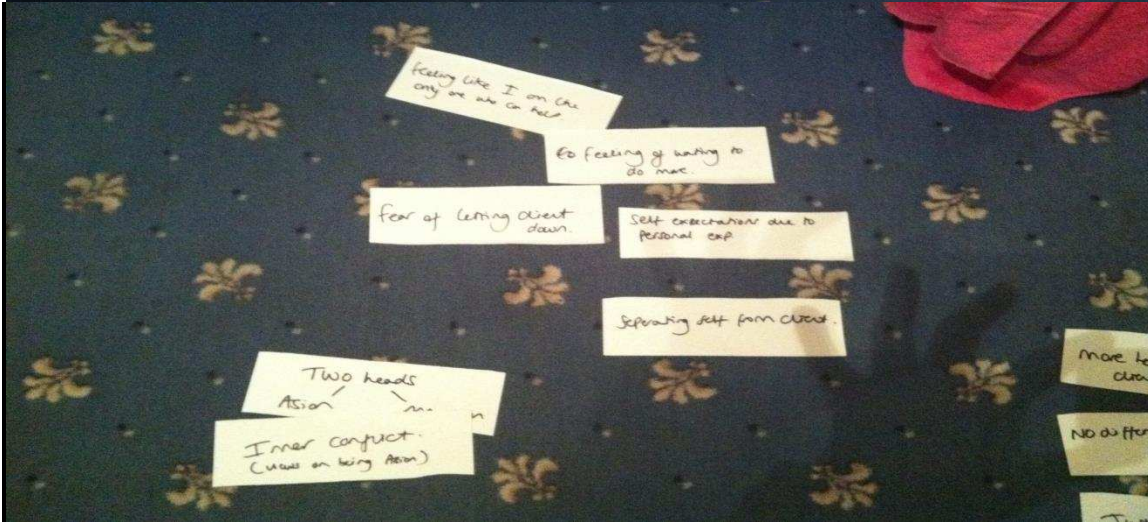 Feeling like I am the
only one who can help
Feeling of wanting to
do more.
Fear of letting client
down.
Self expectations due to
personal exp.
Seperating self from client.
Two heads
Asian
Inner conflict.
(views on being Asian)
More
NO